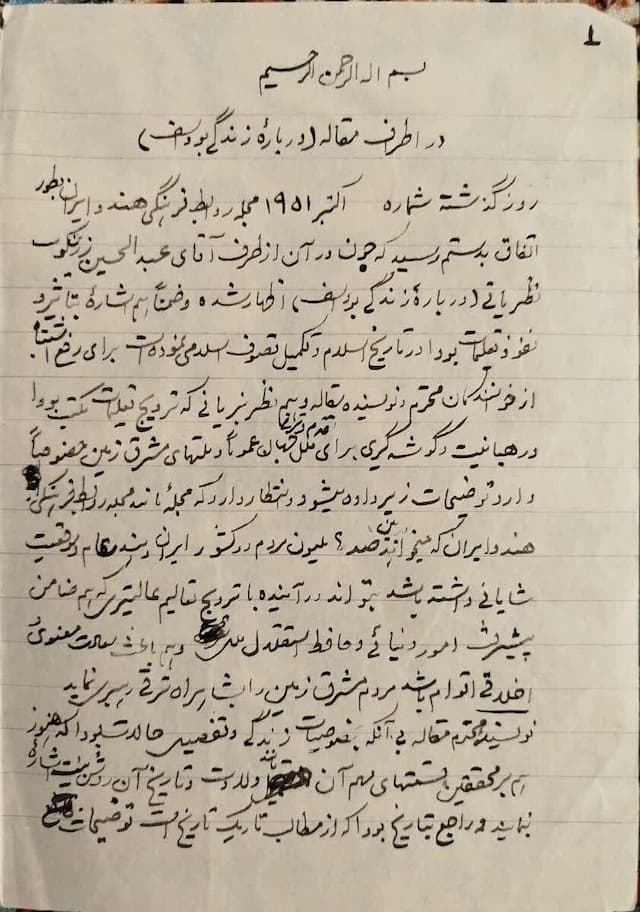 ۱
بسم اله الرحمن الرحیم
در اطراف مقاله (در بارهٔ زندگی بوداسف)
روز گذشته شماره اکتبر ۱۹۵۱ مجله روابط فرهنگی هند و ایران بطور
اتفاق بدستم رسید که چون در آن از طرف آقای عبدالحسین زرینکوب
نظریاتی (در بارهٔ زندگی بوداسف) اظهار شده و ضمناً هم اشارهٔ بتأثیر و
نفوذ تعلیمات بودا در تاریخ اسلام و تکمیل تصوف اسلامی نموده است برای رفع اشتباه
از خوانندگان محترم و نویسنده مقاله و هم نظر بزیانی که ترویج تعلیمات مکتب بودا
در رهبانیت و گوشه گیری برای ملل جهان عموماً و ملتهای مشرق زمین خصوصاً
وارد توضیحات زیر داده میشود و انتظار دارد که مجلهٔ مانند مجله روابط فرهنگی
هند و ایران که میخواهد بین صد ؟ ملیون مردم در کشور ایران و هند مقام و موقعیت
شایانی داشته باشد بتواند در آینده با ترویج تعالیم عالیتری که هم ضامن
پیشرفت امور دنیائی و حافظ استقلال ملل و هم باعث سعادت معنوی و
اخلاقی اقوام باشد مردم مشرق زمین را بشاهراه ترقی رهبری نماید
نویسندهٔ محترم مقاله بی آنکه بخصوصیات زندگی و تفصیل حالات بودا که هنوز
هم بر محققین قسمتهای مهم آن مانند ولادت و تاریخ آن روشن نیست اشارهٔ
نمایند و راجع بتاریخ بودا که از مطالب تاریک تاریخ است توضیحات